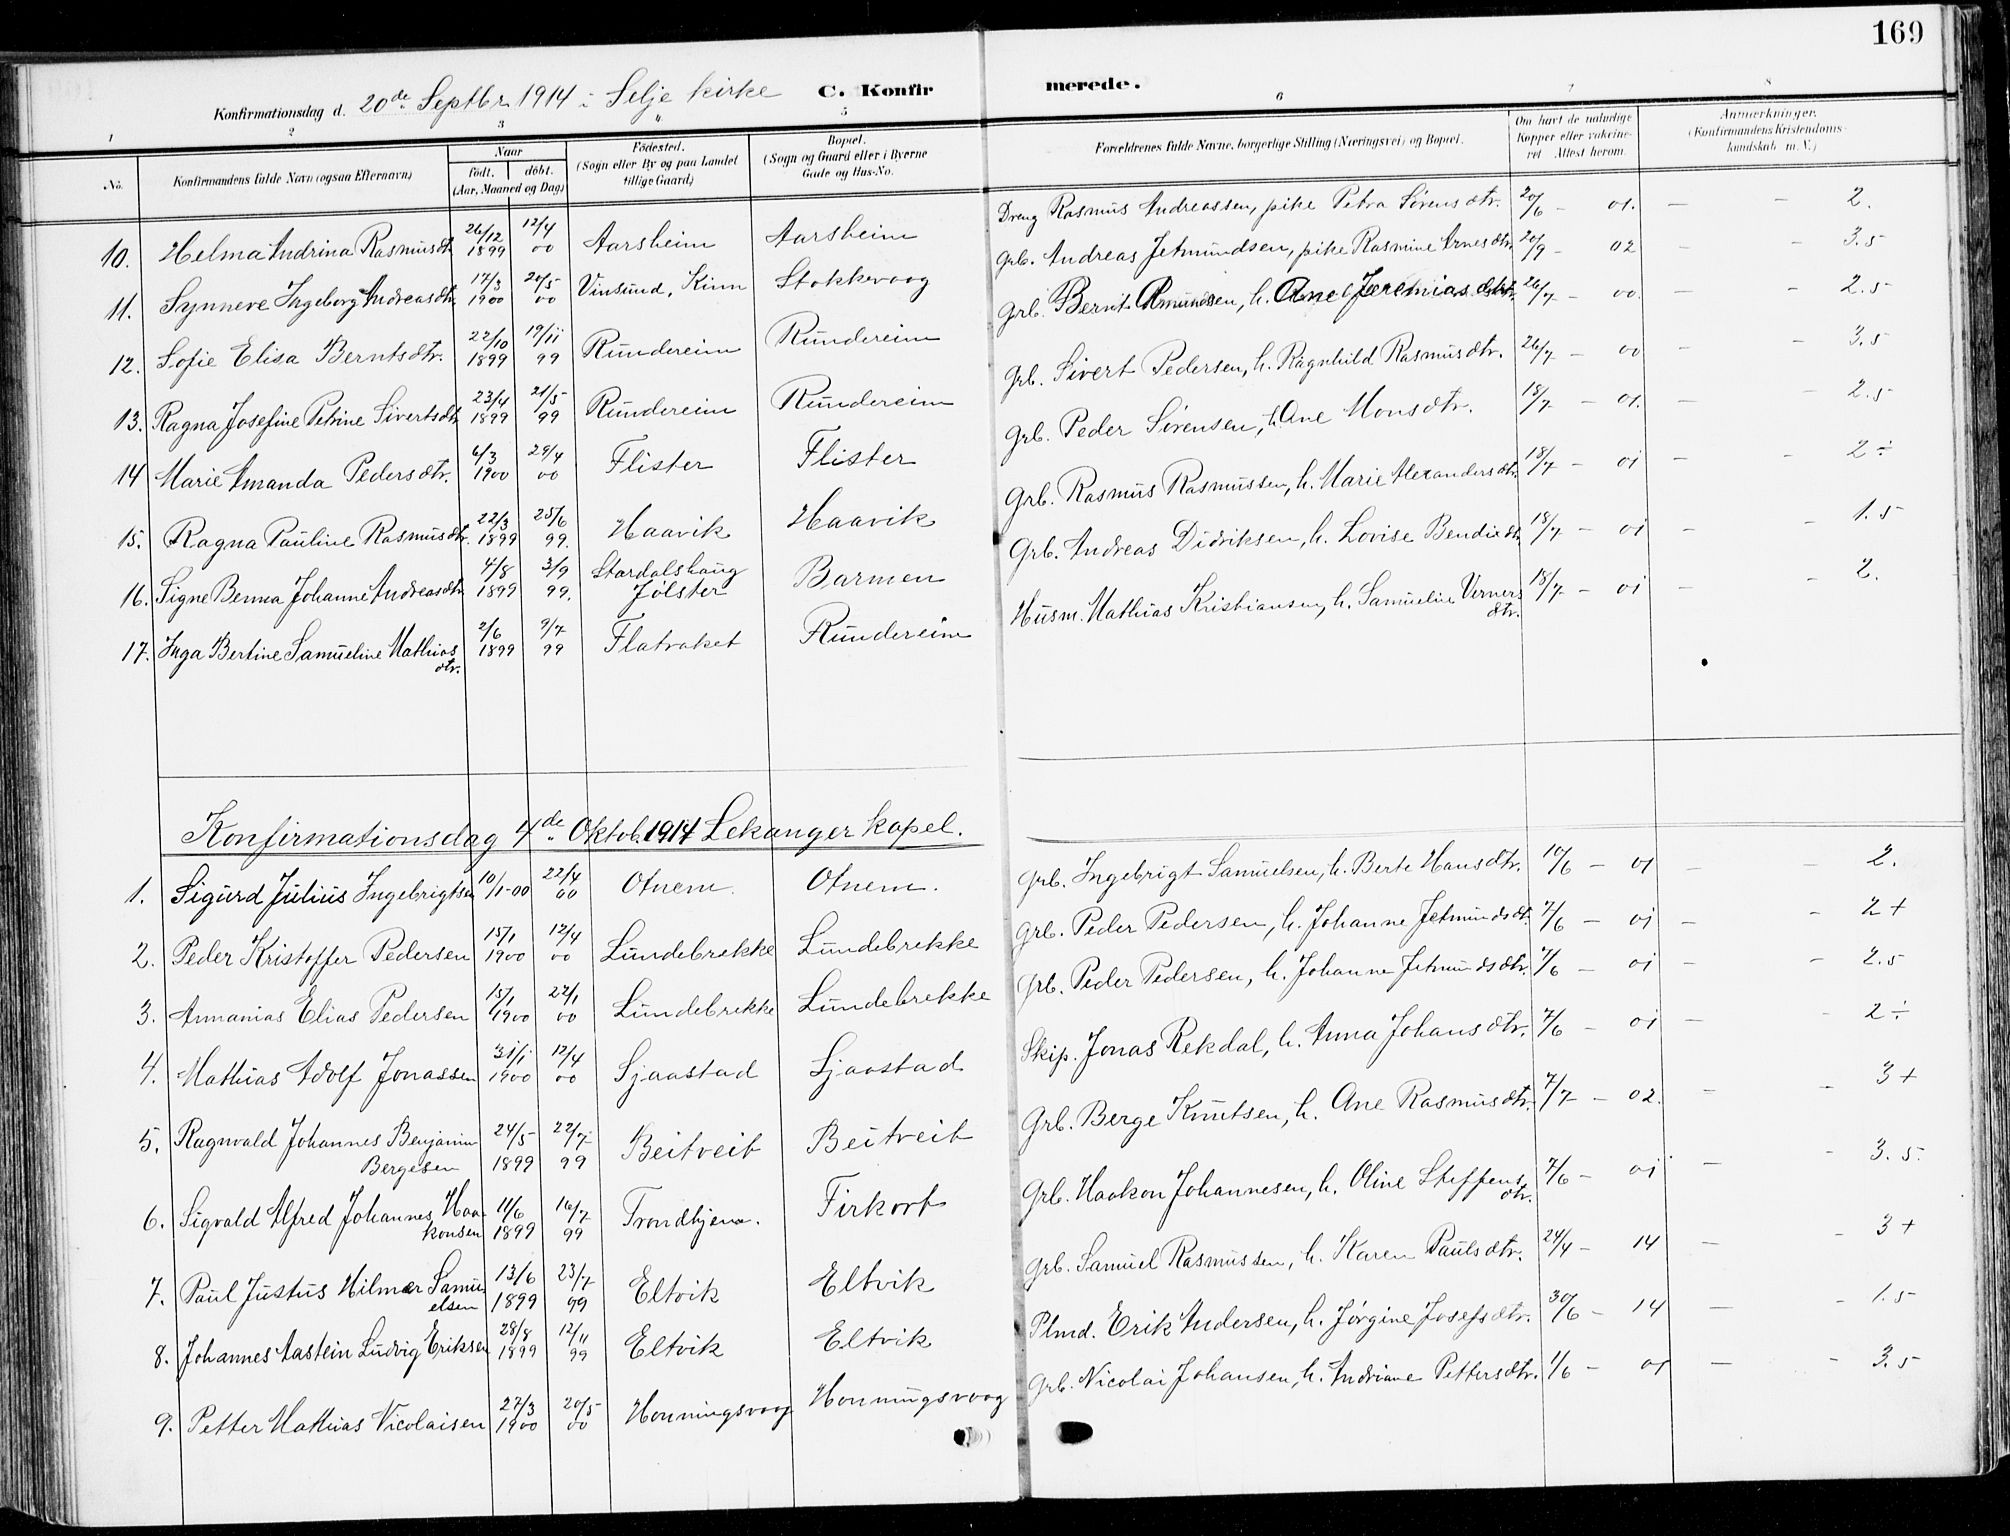 169
Konfirmationsdag d. 20de Septbr 1914 i Selje kirke C. Konfirmerede.
1 2 3 4 5 6 7 8
No. Konfirmandens fulde Navn (ogsaa Efternavn) Naar født. døbt. (Aar, Maaned og Dag) Fødested. (Sogn eller By og paa Landet tillige Gaard) Bopæl. (Sogn og Gaard eller i Byerne Gade og Hus-No. Forældrenes fulde Navne, borgerlige Stilling (Næringsvei) og Bopæl. Om havt de naturlige Kopper eller vakcineret. Attest herom. Anmærkninger. (Konfirmandens Kristendomskundskab m. V.)
10. Helma Andrina Rasmusdtr. 26/12 1899 12/4 00 Aarsheim Aarsheim Dreng Rasmus Andreassen, pike Petra Sørensdtr. 20/6 - 01. - - 2.
11. Synneve Ingeborg Andreasdtr. 17/3 1900 20/5 00 Vinsund, Kinn Stokkevaag Grb. Andreas Jetmundsen, pike Rasmine Arnesdtr. 20/9 - 02 - - 3.5
12. Sofie Elisa Berntsdtr. 22/10 1899 19/11 99 Rundereim Rundereim Grb. Bernt Amundsen, h. Ane Jeremiasdtr. 26/7 - 00. - - 2.5
13. Ragna Josefine Petrine Sivertsdtr. 23/4 1899 21/5 99 Rundereim Rundereim Grb. Sivert Pedersen, h. Ragnhild Rasmusdtr. 26/7 - 00 - - 3.5
14 Marie Amanda Pedersdtr. 6/3 1900 29/4 00 Flister Flister Grb. Peder Sørensen, h. Ane Monsdtr. 18/7 - 01. - - 2.5
15. Ragna Pauline Rasmusdtr. 22/3 1899 25/6 99. Haavik Haavik Grb. Rasmus Rasmussen, h. Marie Alexandersdtr. 18/7 - 01 - - 2 ÷
16. Signe Benna Johanne Andreasdtr. 4/8 1899 3/9 99. Stardalshaug Jølster Barmen Grb. Andreas Didriksen, h. Lovise Bendixdtr. 18/7 - 01 - - 1.5
17. Inga Bertine Samueline Mathiasdtr. 2/6 1899 9/7 99 Flatraket Rundereim Husm. Mathias Kristiansen, h. Samueline Vernersdtr. 18/7 - 01 - - 2.
Konfirmationsdag 4de Oktob. 1914 Lekanger kapel.
1. Sigurd Julius Ingebrigtsen 10/1-00 22/4 00 Otnem. Otnem. Grb. Ingebrigt Samuelsen, h. Berte Hansdtr. 10/6 - 01 - - 2.
2. Peder Kristoffer Pedersen 15/1 1900 12/4 00 Lundebrekke Lundebrekke Grb. Peder Pedersen, h. Johanne Jetmundsdt. 7/6 - 01 - - 2+
3. Annanias Elias Pedersen 15/1 1900 22/1 00 Lundebrekke Lundebrekke Grb. Peder Pedersen, h. Johanne Jetmundsdtr. 7/6 - 01 - - 2.5
4. Mathias Adolf Jonassen 31/1 1900 12/4 00 Sjaastad Sjaastad Skip. Jonas Rekdal, h. Anna Johansdtr. 7/6 - 01 - - 2 ÷
5. Ragnvald Johannes Benjamin Bergesen 24/5 1899 22/7 99 Beitveit Beitveit Grb. Berge Knutsen, h. Ane Rasmusdtr. 7/7 - 02. - - 3+
6. Sigvald Alfred Johannes Haakonsen 11/6 1899 16/7 99 Trondhjem. Firkort Grb. Haakon Johannesen, h. Oline Steffensdtr. 7/6 - 01 - - 3.5.
7. Paul Justus Hilmar Samuelsen 13/6 1899 23/7 99 Eltvik Eltvik Grb. Samuel Rasmussen, h. Karen Paulsdtr. 24/4 - 14 - - 3+
8. Johannes Aastein Ludvig Eriksen 28/8 1899 12/11 99 Eltvik Eltvik Plmd. Erik Andersen, h. Jørgine Josefsdtr. 30/6 - 14 - - 1.5
9. Petter Mathias Nicolaisen 27/3 1900 20/5 00 Honningsvaag Honningsvaag Grb. Nicolai Johansen, h. Andriane Pettersdtr. 1/6 - 01 - - 3.5